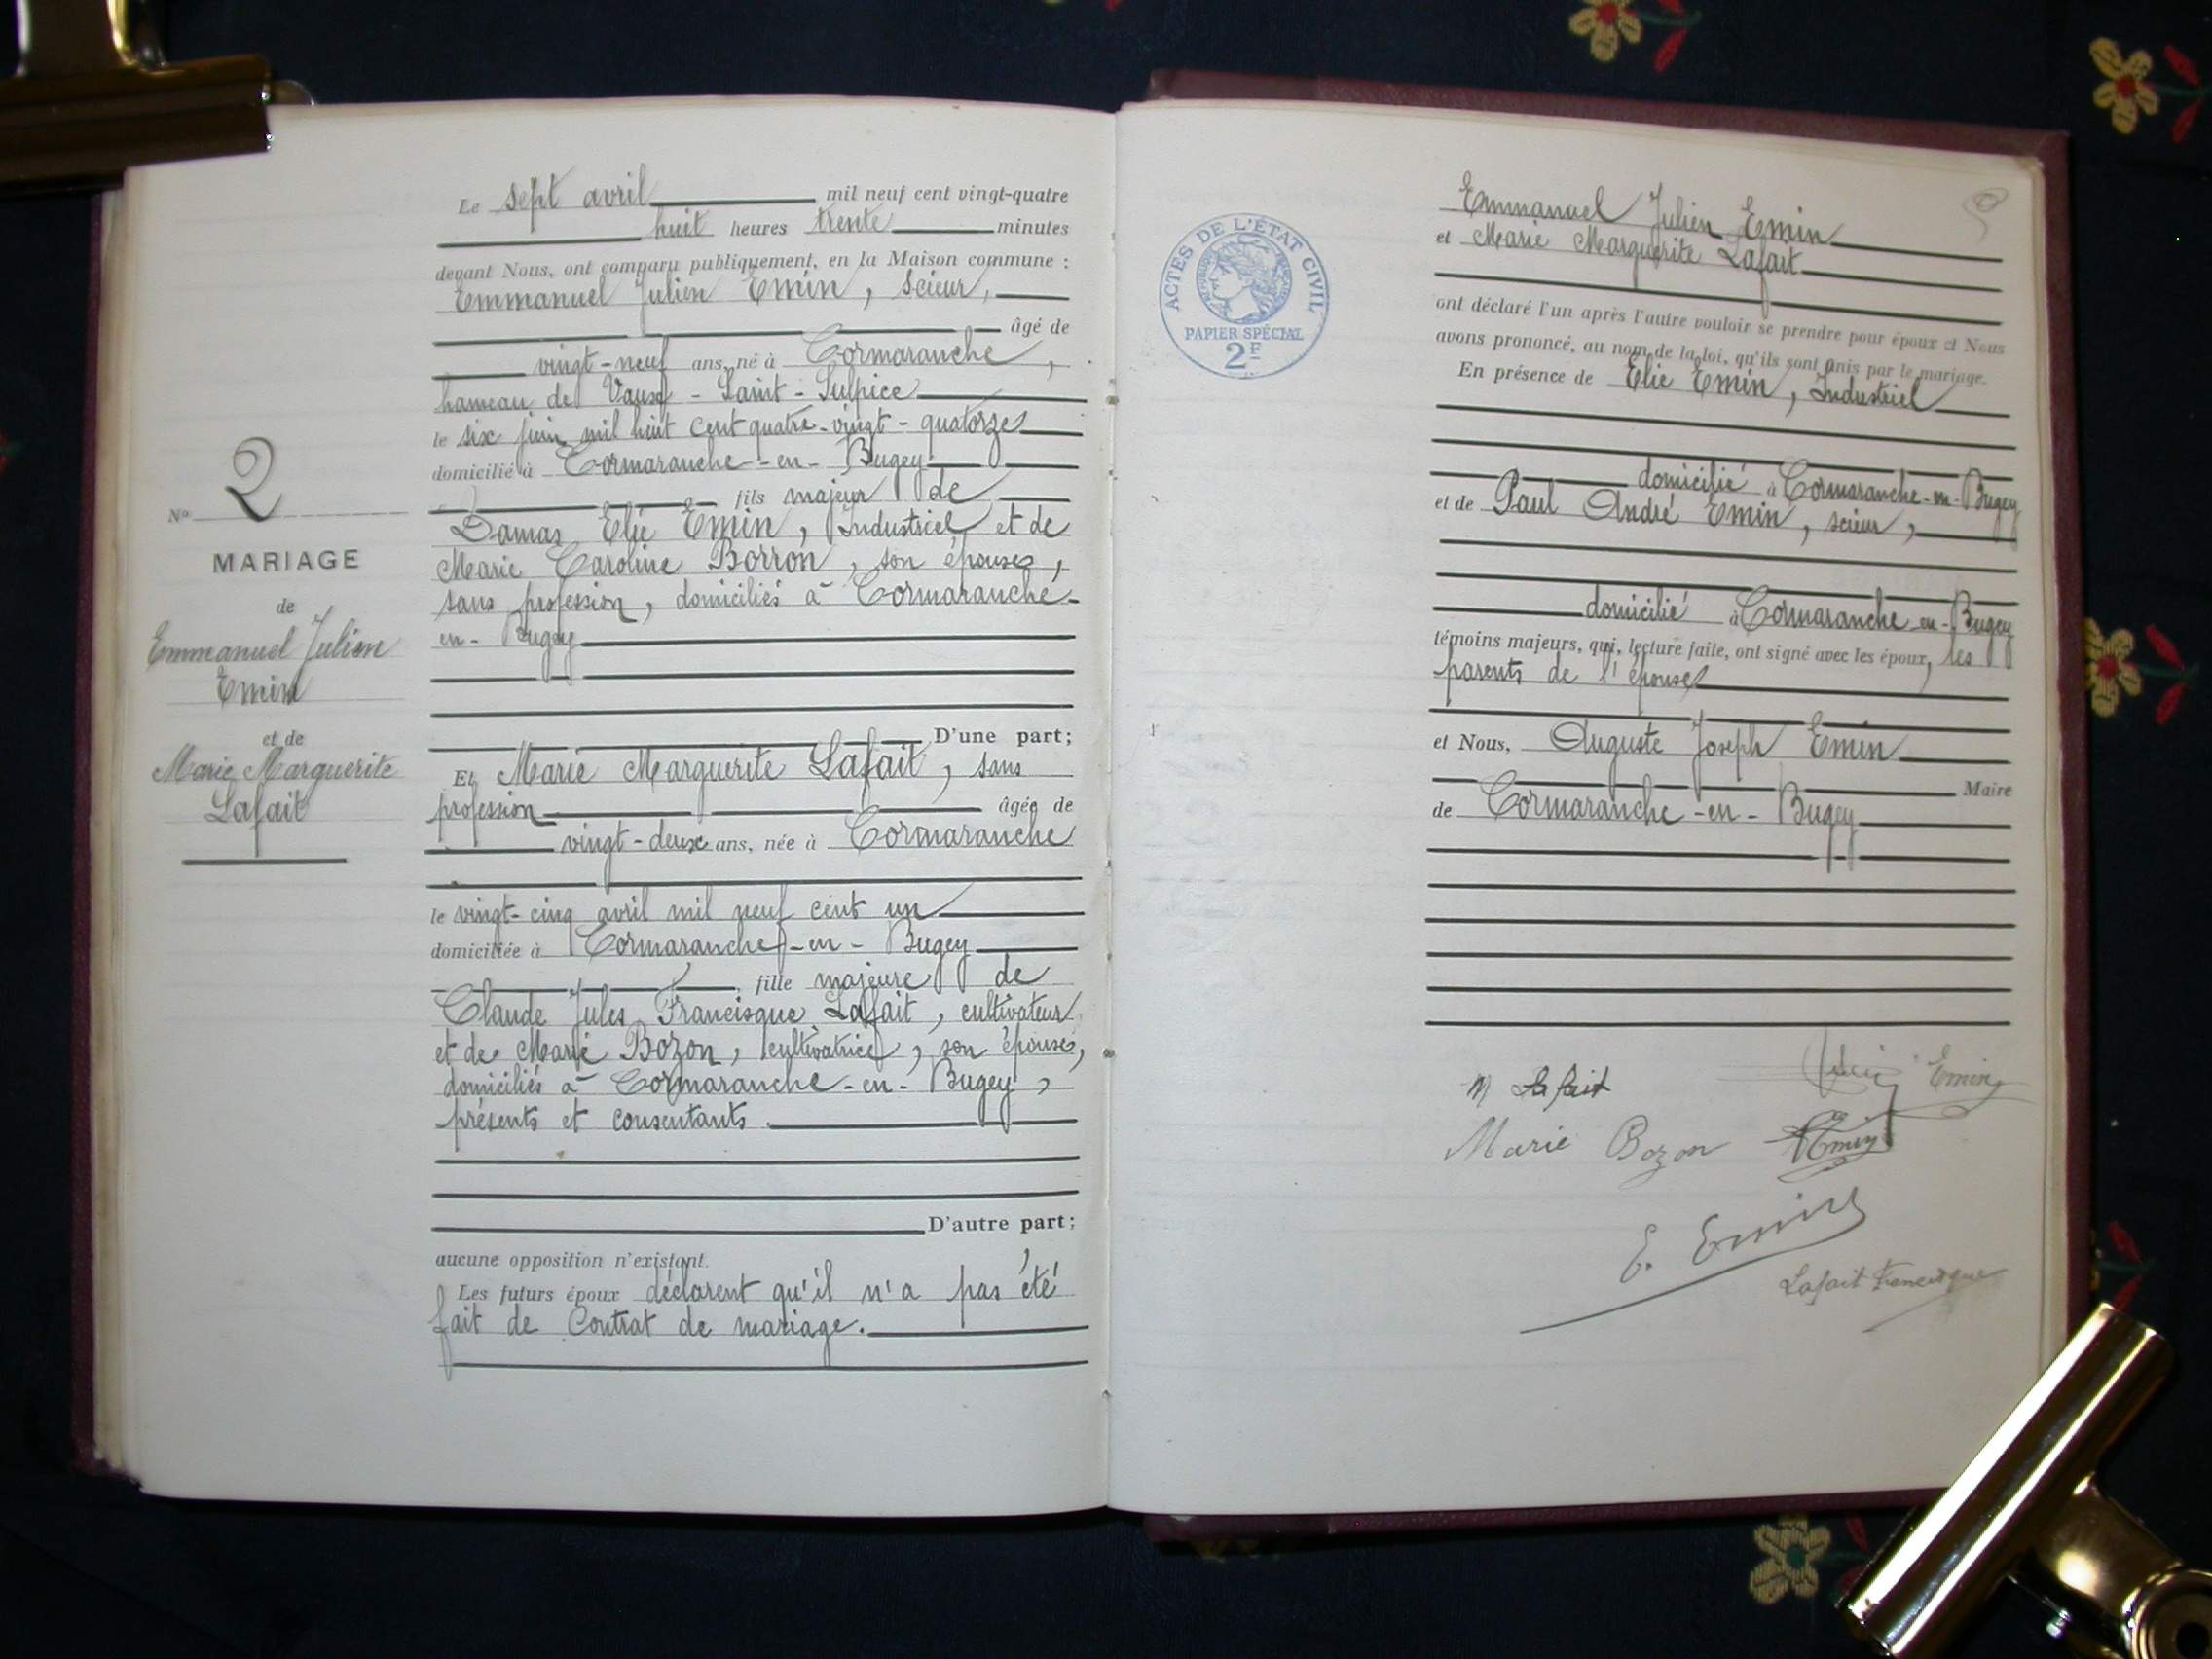 Le sept avril mil neuf cent vingt-quatre
huit heures trente minutes
devant Nous, ont comparu publiquement, en la Maison commune :
Emmanuel Julien Emin, scieur,
âgé de
vingt-neuf ans, né à Cormaranche,
hameau de Vaux-Saint-Sulpice
le six juin mil huit cent quatre-vingt-quatorze
domicilié à Cormaranche-en-Bugey
fils majeur de
Damas Elie Emin, Industriel et de
Marie Caroline Borron, son épouse,
sans profession, domiciliés à Cormaranche-
en-Bugey
D'une part;
Et Marie Marguerite Lafait, sans
profession âgée de
vingt-deux ans, née à Cormaranche
le vingt-cinq avril mil neuf cent un
domiciliée à Cormaranche-en-Bugey
fille majeure de
Claude Jules Francisque Lafait, cultivateur
et de Marie Bozon, cultivatrice, son épouse,
domiciliés à Cormaranche-en-Bugey,
présents et consentants.
D'autre part;
aucune opposition n'existant.
Les futurs époux déclarent qu'il n'a pas été
fait de Contrat de mariage.
No 2
MARIAGE
de
Emmanuel Julien
Emin
et de
Marie Marguerite
Lafait
ACTES DE L'ÉTAT CIVIL
PAPIER SPÉCIAL
2F
Emmanuel Julien Emin
et Marie Marguerite Lafait
ont déclaré l'un après l'autre vouloir se prendre pour époux et Nous
avons prononcé, au nom de la loi, qu'ils sont unis par le mariage.
En présence de Elie Emin, Industriel
domicilié à Cormaranche-en-Bugey
et de Paul André Emin, scieur,
domicilié à Cormaranche-en-Bugey
témoins majeurs, qui, lecture faite, ont signé avec les époux, les
parents de l'épouse
et Nous, Auguste Joseph Emin
Maire
de Cormaranche-en-Bugey
M Lafait
Emin
Marie Bozon
Emin
E. Emin
Lafait Francisque